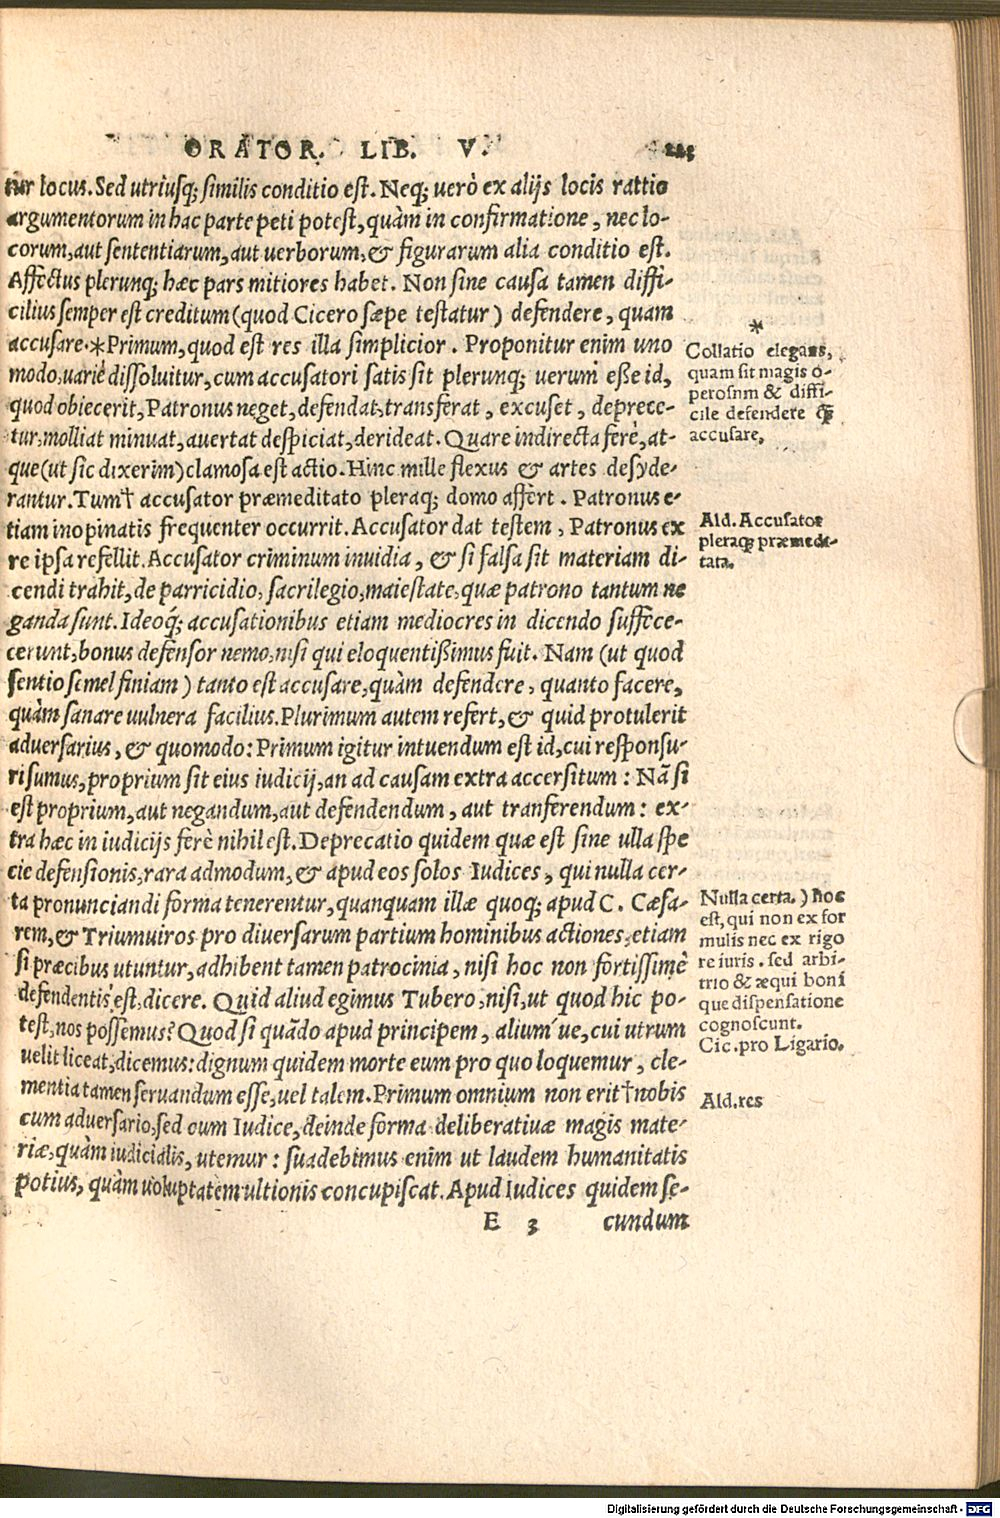 ORATOR. LIB. V.
tur locus. Sed utriusq; similis conditio est. Neq; uerò ex alijs locis rattio
argumentorum in hac parte peti potest, quàm in confirmatione, nec lo-
corum, aut sententiarum, aut uerborum, & figurarum alia conditio est.
Affectus plerunq; hæc pars mitiores habet. Non sine causa tamen diffi-
cilius semper est creditum (quod Cicero sæpe testatur) defendere, quam
accusare.* Primum, quod est res illa simplicior. Proponitur enim uno
modo, uariè dissoluitur, cum accusatori satis sit plerunq; uerum esse id,
quod obiecerit, Patronus neget, defendat, transferat, excuset, deprece-
tur, molliat minuat, auertat despiciat, derideat. Quare indirecta ferè, at-
que (ut sic dixerim) clamosa est actio. Hinc mille flexus & artes desyde-
rantur. Tum† accusator præmeditato pleraq; domo affert. Patronus e-
tiam inopinatis frequenter occurrit. Accusator dat testem, Patronus ex
re ipsa refellit. Accusator criminum inuidia, & si falsa sit materiam di-
cendi trahit, de parricidio, sacrilegio, maiestate, quæ patrono tantum ne
ganda sunt. Ideoq́; accusationibus etiam mediocres in dicendo suffece-
cerunt, bonus defensor nemo, nisi qui eloquentißimus fuit. Nam (ut quod
sentio semel finiam) tanto est accusare, quàm defendere, quanto facere,
quàm sanare uulnera facilius. Plurimum autem refert, & quid protulerit
aduersarius, & quomodo: Primum igitur intuendum est id, cui responsu-
ri sumus, proprium sit eius iudicij, an ad causam extra accersitum: Nã si
est proprium, aut negandum, aut defendendum, aut tranferendum: ex-
tra hæc in iudicijs ferè nihil est. Deprecatio quidem quæ est sine ulla spe
cie defensionis, rara admodum, & apud eos solos Iudices, qui nulla cer-
ta pronunciandi forma tenerentur, quanquam illæ quoq; apud C. Cæsa-
rem, & Triumuiros pro diuersarum partium hominibus actiones, etiam
si præcibus utuntur, adhibent tamen patrocinia, nisi hoc non fortissimè
defendentis est, dicere. Quid aliud egimus Tubero, nisi, ut quod hic po-
test, nos possemus? Quod si quãdo apud principem, alium´ue, cui utrum
uelit liceat, dicemus: dignum quidem morte eum pro quo loquemur, cle-
mentia tamen seruandum esse, uel talem. Primum omnium non erit† nobis
cum aduersario, sed cum Iudice, deinde forma deliberatiuæ magis mate-
riæ, quàm iudicialis, utemur: suadebimus enim ut laudem humanitatis
potius, quàm uoluptatem ultionis concupiscat. Apud Iudices quidem se-
E 3 cundum
*
Collatio elegans,
quam sit magis o-
perosum & diffi-
cile defendere q̃
accusare,
Ald. Accusator
pleraq; præmedi-
tata.
Nulla certa.) hoc
est, qui non ex for
mulis nec ex rigo
re iuris. sed arbi-
trio & æqui boni
que dispensatione
cognoscunt.
Cic. pro Ligario.
Ald. res
Digitalisierung gefördert durch die Deutsche Forschungsgemeinschaft - DFG